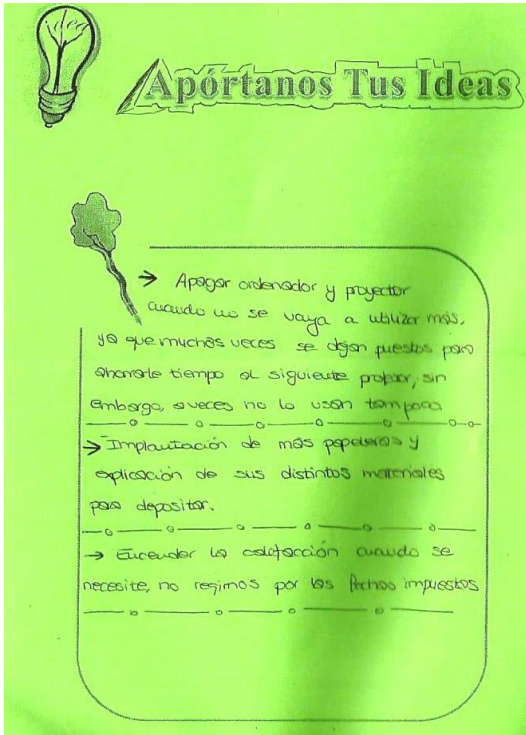 idea
Apórtanos Tus Ideas
→ Apagar ordenador y proyector
cuando no se vaya a utilizar más,
ya que muchas veces se dejan puestos para
ahorrarle tiempo al siguiente profesor, sin
embargo, a veces no lo usan tampoco
→ Implantación de más papeleras y
explicación de sus distintos materiales
para depositar.
→ Encender la calefacción cuando se
necesite, no regirnos por las fechas impuestas